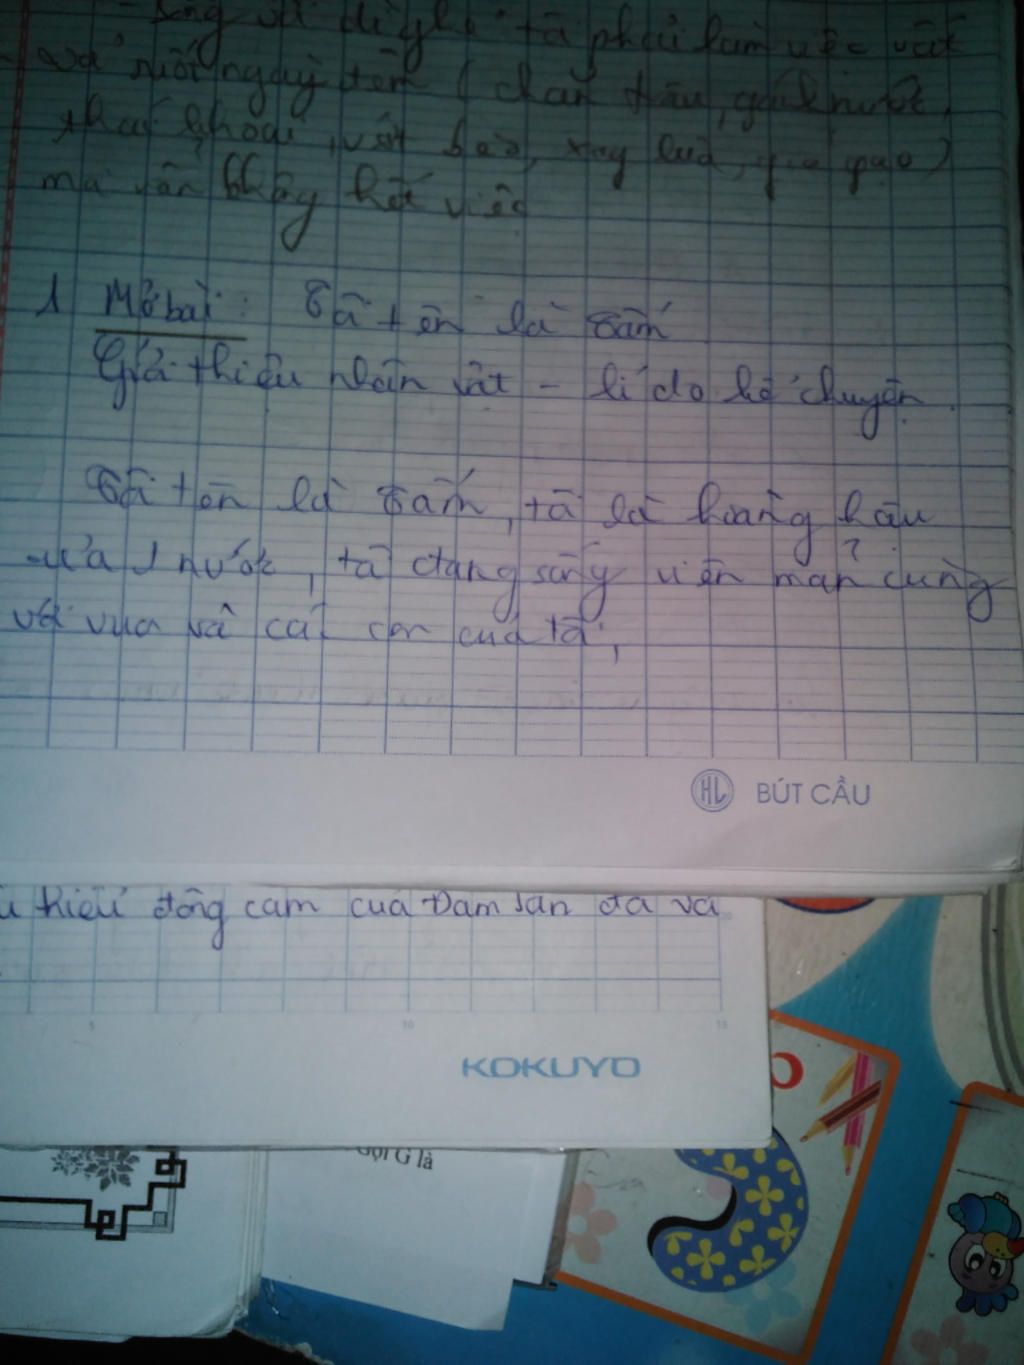 sống với dì ghẻ ta phải làm việc vất
vả suốt ngày đêm ( chăn trâu, gánh nước,
thái khoai, vớt bèo, xay lúa, giã gạo )
mà vẫn không hết việc
1 Mở bài: Ta tên là Tấm
Giới thiệu nhân vật - lí do kể chuyện.
Ta tên là Tấm, ta là hoàng hậu
của 1 nước, ta đang sống viên mãn cùng
với vua và các con của ta,
HL BÚT CẦU
hiểu đồng cảm của Đam San đã và
5 10 15
KOKUYO
Gọi G là